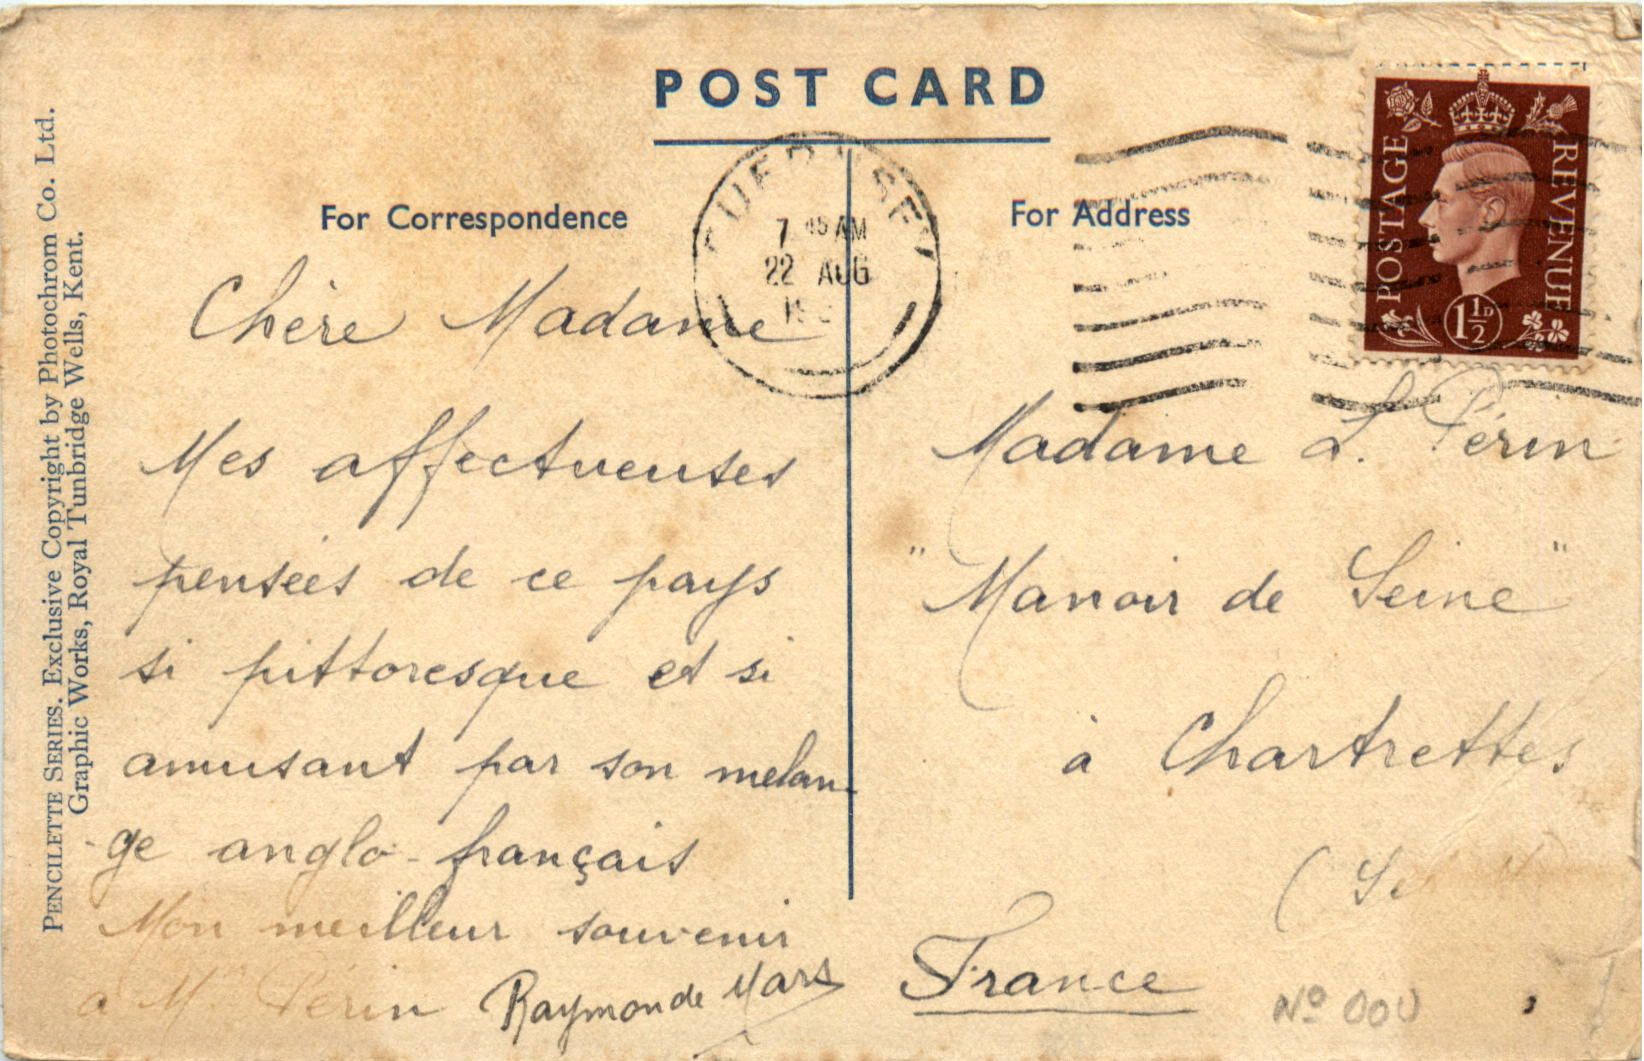 POST CARD
PENCILETTE SERIES. Exclusive Copyright by Photochrom Co. Ltd.
Graphic Works, Royal Tunbridge Wells, Kent.
For Correspondence
Chère Madame
Mes affectueuses
pensées de ce pays
si pittoresque et si
amusant par son melan-
-ge anglo-français
Mon meilleur souvenir
à Mr Périn Raymonde Mars
7 45 AM
22 AUG
For Address
POSTAGE
REVENUE
1½D
Madame L. Périn
"Manoir de Seine"
à Chartrettes
France
Nº 000